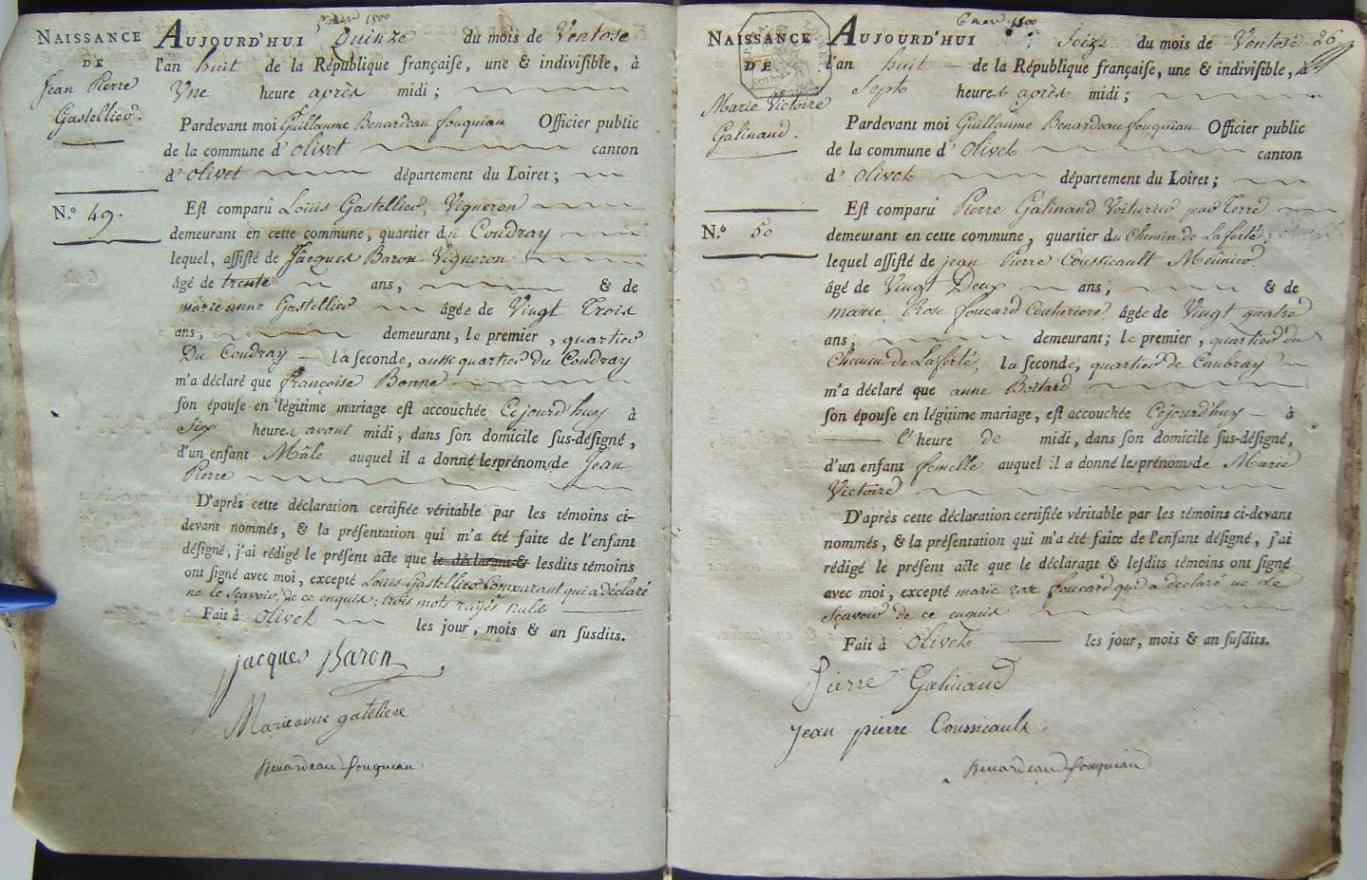 NAISSANCE
DE
Jean Pierre
Gastellier.
N.º 49.
mars 1800
AUJOURD'HUI Quinze du mois de Ventose
l'an huit de la République française, une & indivisible, à
Une heure après midi ;
Pardevant moi Guillaume Benardeau fouqueau Officier public
de la commune d'olivet canton
d'olivet département du Loiret ;
Est comparû Louis Gastellier, Vigneron
demeurant en cette commune, quartier du Coudray
lequel, assisté de Jacques Baron Vigneron
âgé de trente ans, & de
marie anne Gastellier âgée de Vingt Trois
ans, demeurant, le premier, quartier
Du Coudray la seconde, aussi quartier du Coudray
m'a déclaré que françoise Bonne
son épouse en légitime mariage est accouchée Cejourd'huy à
Six heures avant midi, dans son domicile sus-désigné,
d'un enfant Mâle auquel il a donné les prénoms de Jean
Pierre
D'après cette déclaration certifiée véritable par les témoins ci-
devant nommés, & la présentation qui m'a été faite de l'enfant
désigné, j'ai rédigé le présent acte que le déclarant & lesdits témoins
ont signé avec moi, excepté Louis Gastellier Comparant qui a déclaré
ne le sçavoir, de ce enquis ; trois mots rayés nuls
Fait à Olivet les jour, mois & an susdits.
jacques Baron
Marieanne gateliere
Benardeau fouqueau
NAISSANCE
DE
Marie Victoire
Galinand.
N.º 50
6 mars 1800
AUJOURD'HUI Seize du mois de Ventose 26
l'an huit de la République française, une & indivisible, à
Sept heures après midi ;
Pardevant moi Guillaume Benardeau fouqueau Officier public
de la commune d'Olivet canton
d'Olivet département du Loiret ;
Est comparû Pierre Galinand Voiturier par Terre
demeurant en cette commune, quartier du Chemin de Laferté,
lequel assisté de jean Pierre Coussicault Meûnier
âgé de Vingt Deux ans ; & de
marie Rose foucard Couturiere âgée de Vingt quatre
ans ; demeurant ; le premier, quartier du
Chemin de Laferté, la seconde, quartier de Caubray
m'a déclaré que anne Boitard
son épouse en légitime mariage, est accouchée Cejourd'huy à
l'heure de midi, dans son domicile sus-désigné,
d'un enfant femelle auquel il a donné les prénoms de Marie
Victoire
D'après cette déclaration certifiée véritable par les témoins ci-devant
nommés, & la présentation qui m'a été faite de l'enfant désigné, j'ai
rédigé le présent acte que le déclarant & lesdits témoins ont signé
avec moi, excepté marie roze foucard qui a déclaré ne Le
Sçavoir de ce enquis
Fait à Olivet les jour, mois & an susdits.
Pierre Galinand
Jean pierre Coussicault
Benardeau fouqueau